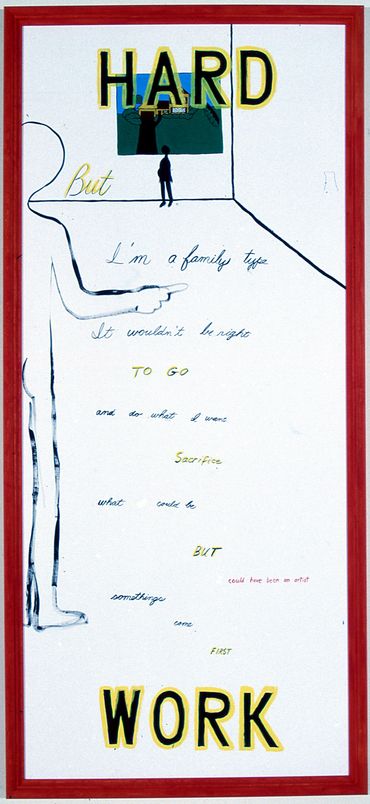 HARD
But
I'm a family type
It wouldn't be right
TO GO
and do what I want
Sacrifice
what could be
BUT
could have been an artist
somethings
come
FIRST
WORK